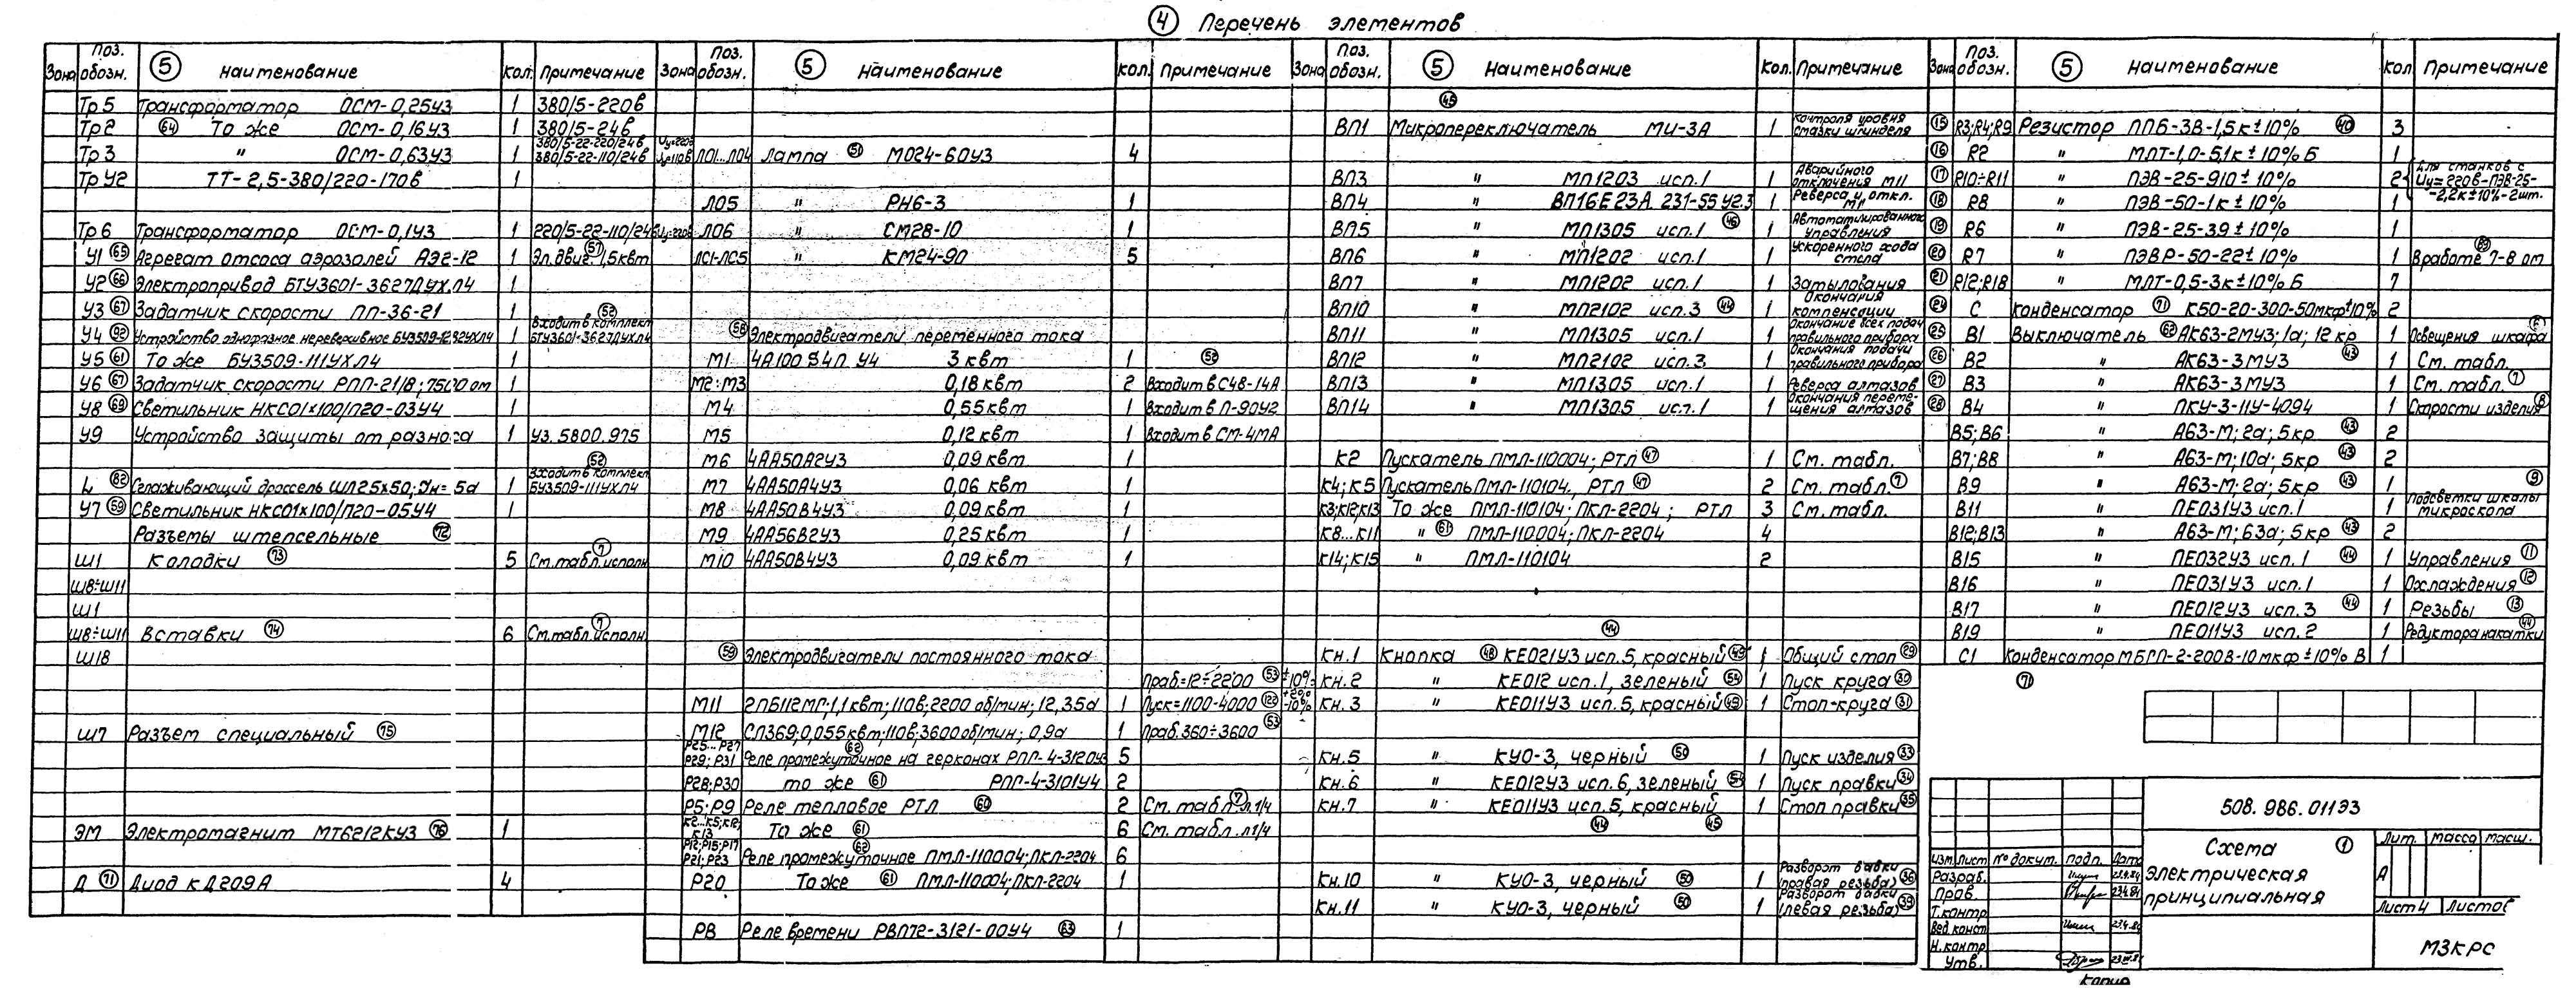 ④ Перечень элементов
Зона Поз. обозн. ⑤ Наименование Кол. Примечание
Тр5 Трансформатор ОСМ-0,25У3 1 380/5-220в
Тр2 (64) То же ОСМ-0,16У3 1 380/5-24в
Тр3 " ОСМ-0,63У3 1 380/5-22-220/24в 380/5-22-110/24в
ТрУ2 ТТ-2,5-380/220-170в 1
Тр6 Трансформатор ОСМ-0,1У3 1 220/5-22-110/24в
У1 (65) Агрегат отсоса аэрозолей АЭ2-12 1 Эл.двиг. (57) 1,5квт
У2 (66) Электропривод БТУ3601-3627ДУХЛ4 1
У3 (67) Задатчик скорости ПП-36-21 1
У4 (92) Устройство однофазное нереверсивное 1 Входит в комплект БТУ3601-3627ДУХЛ4
У5 (61) То же БУ3509-111УХЛ4 1
У6 (67) Задатчик скорости РПП-21/8; 1
У8 (69) Светильник НКС01х100/П20-03У4 1
У9 Устройство защиты от разноса 1 У3.5800.975
(52)
L (82) Сглаживающий дроссель ШЛ25х50; Iн=5а 1 Входит в комплект БУ3509-111УХЛ4
У7 (59) Светильник НКС01х100/П20-05У4 1
Разъемы штепсельные (72)
Ш1 Колодки (73) 5 См.табл.исполн (7)
Ш8÷Ш11
Ш1
Ш8÷Ш11 Вставки (74) 6 См.табл.исполн (7)
Ш18
Ш7 Разъем специальный (75)
ЭМ Электромагнит МТ6212КУ3 (76) 1
Д (71) Диод КД209А 4
Зона Поз. обозн. ⑤ Наименование Кол. Примечание
ЛО1...ЛО4 Лампа (51) МО24-60У3 4
ЛО5 " РН6-3 1
ЛО6 " СМ28-10 1
ЛС1-ЛС5 " КМ24-90 5
(58) Электродвигатели переменного тока
М1 4А100S4П У4 3квт 1 (52)
М2:М3 0,18квт 2 Входит в С48-14А
М4 0,55квт 1 Входит в П-90У2
М5 0,12квт 1 Входит в СМ-4МА
М6 4АА50А2У3 0,09квт 1
М7 4АА50А4У3 0,06квт 1
М8 4АА50В4У3 0,09квт 1
М9 4АА56В2У3 0,25квт 1
М10 4АА50В4У3 0,09квт 1
(59) Электродвигатели постоянного тока
nраб=12÷2200 (53) ±10%
М11 2ПБ112МГ;1,1квт;110в;2200об/мин;12,35а 1 nуск=1100-4000 (122)
М12 СЛ369;0,055квт;110в;3600об/мин;0,9а 1 nраб.360÷3600 (53)
Р25...Р27 Р29; Р31 Реле промежуточное на герконах (62) РПГ-4-3120У3 5
Р28;Р30 то же (61) РПГ-4-3101У4 2
Р5;Р9 Реле тепловое РТЛ (60) 2 См.табл.л1/4 (7)
К2...К5;К12; К13 То же (61) 6 См.табл.л1/4
Р12;Р15;Р17 Р21;Р23 Реле промежуточное (62) ПМЛ-110004;ПКЛ-2204 6
Р20 То же (61) ПМЛ-110004;ПКЛ-2204 1
РВ Реле времени РВП72-3121-00У4 (63) 1
Зона Поз. обозн. ⑤ Наименование Кол. Примечание
(45)
ВП1 Микропереключатель МИ-3А 1 Контроля уровня смазки шпинделя (15)
(16)
ВП3 " МП1203 исп.1 1 Аварийного отключения М11 (17)
ВП4 " ВП16Е23А 231-55У2.3 1 Реверса и откл. (18)
ВП5 " МП1305 исп.1 (46) 1 Автоматизированного управления (19)
ВП6 " МП1202 исп.1 1 Ускоренного хода стола (20)
ВП7 " МП1202 исп.1 1 Затылования (21)
ВП10 " МП2102 исп.3 (44) 1 Окончания компенсации (24)
ВП11 " МП1305 исп.1 1 Окончание всех подач правильного прибора (25)
ВП12 " МП2102 исп.3 1 Окончания подачи правильного прибора (26)
ВП13 " МП1305 исп.1 1 Реверса алмазов (27)
ВП14 " МП1305 исп.1 1 Окончания переме-щения алмазов (28)
К2 Пускатель ПМЛ-110004; РТЛ (47) 1 См. табл.
К4; К5 Пускатель ПМЛ-110104, РТЛ (47) 2 См. табл. (7)
К3;К12;К13 То же ПМЛ-110104; ПКЛ-2204; РТЛ 3 См. табл.
К8...К11 " (61) ПМЛ-110004; ПКЛ-2204 4
К14; К15 " ПМЛ-110104 2
(44)
Кн.1 Кнопка (48) КЕ021У3 исп.5, красный (49) 1 Общий стоп (29)
Кн.2 " КЕ012 исп.1, зеленый (54) 1 Пуск круга (30)
Кн.3 " КЕ011У3 исп.5, красный (49) 1 Стоп-круга (31)
Кн.5 " КУО-3, черный (50) 1 Пуск изделия (33)
Кн.6 " КЕ012У3 исп.6, зеленый (54) 1 Пуск правки (34)
Кн.7 " КЕ011У3 исп.5, красный 1 Стоп правки (35)
(44) (45)
Кн.10 " КУО-3, черный (50) 1 Разворот бабки (правая резьба) (36)
Кн.11 " КУО-3, черный (50) 1 Разворот бабки (левая резьба) (39)
Зона Поз. обозн. ⑤ Наименование Кол Примечание
R3;R4;R9 Резистор ППБ-3В-1,5к±10% (40) 3
R2 " МЛТ-1,0-5,1к±10% Б 1
R10÷R11 " ПЭВ-25-910±10% 2 Для станков с Uу=220в-ПЭВ-25--2,2к±10%-2шт.
R8 " ПЭВ-50-1к±10% 1
R6 " ПЭВ-25-39±10% 1
R7 " ПЭВР-50-22±10% 1 В работе 7-8 ом (89)
R12;R18 " МЛТ-0,5-3к±10% Б 7
С Конденсатор (71) К50-20-300-50мкф±10% 2
В1 Выключатель (62) АК63-2МУ3;1а;12кр 1 Освещения шкафа
В2 " АК63-3МУ3 (43) 1 См. табл.
В3 " АК63-3МУ3 1 См. табл. (7)
В4 " ПКУ-3-11У-4094 1 Скорости изделия (8)
В5;В6 " А63-М; 2а; 5кр (43) 2
В7;В8 " А63-М; 10а; 5кр (43) 2
В9 " А63-М; 2а; 5кр (43) 1 (9)
В11 " ПЕ031У3 исп.1 1 Подсветки шкалы микроскопа
В12;В13 " А63-М; 63а; 5кр (43) 2
В15 " ПЕ032У3 исп.1 (44) 1 Управления (11)
В16 " ПЕ031У3 исп.1 1 Охлаждения (12)
В17 " ПЕ012У3 исп.3 (44) 1 Резьбы (13)
В19 " ПЕ011У3 исп.2 1 Редуктора накатки (44)
С1 Конденсатор МБГП-2-200В-10мкф±10% В 1
(71)
508.986.01133
Схема ①
электрическая
принципиальная
Лит. Масса Масш.
А
Лист 4 Листов
МЗКРС
Изм. Лист № докум. Подп. Дата
Разраб.
Пров.
Т.контр
Вед.конст
Н.контр
Утв.
Копир